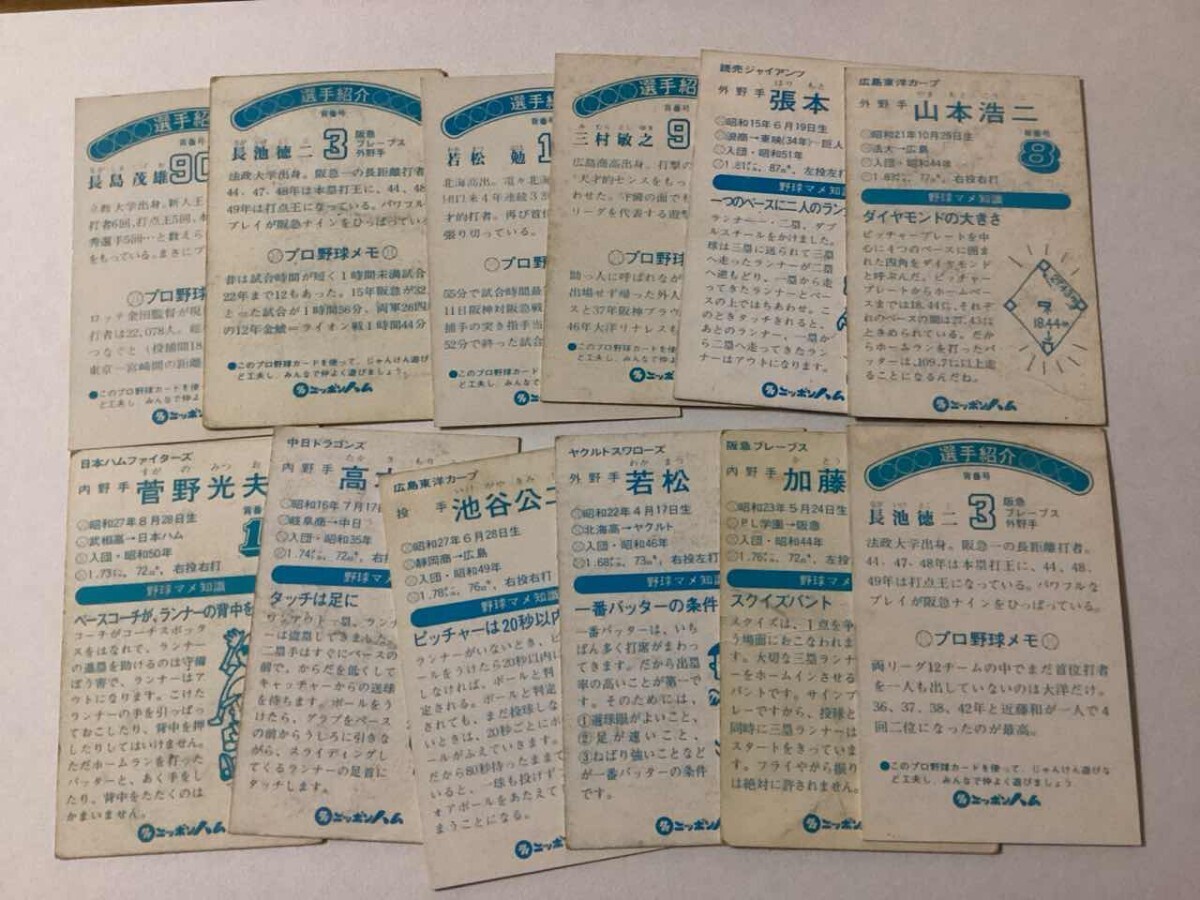 選手紹介
背番号
長島茂雄 90
立教大学出身。新人王
打者6回、打点王5回、
秀選手5回…と数えら
をもっている。まさにプ
プロ野球
ロッテ金田監督が現
打者は22,078人。
つなぐと(投捕間18
東京―宮崎間の距離
●このプロ野球カードを使
ど工夫し、みんなで仲
ニッポンハム
選手紹介
背番号
長池徳二 3 阪急ブレーブス外野手
法政大学出身。阪急一の長距離打者
44、47、48年は本塁打王に、44、48
49年は打点王になっている。パワフル
プレイが阪急ナインをひっぱってい
プロ野球メモ
昔は試合時間が短く1時間未満試合
22年まで12もあった。15年阪急が32
とった試合が1時間56分、両軍26四
の12年金鯱―ライオン戦1時間44分
●このプロ野球カードを使って、じゃんけん遊び
ど工夫し、みんなで仲よく遊びましょう。
ニッポンハム
選手紹介
若松 勉 1
北海高出。
才的打者。再び首位
張り切っている。
プロ野球
55分で試合時間最
11日阪神対阪急戦
捕手の突き指手当
52分で終った試合
●このプロ野球カードを使
ど工夫し、みんなで仲
ニッポンハム
選手紹介
みむらとしゆき
三村敏之 9
広島商高出身。打撃の
天才的センスをもっ
わせた。守備の面でも
リーグを代表する遊撃
プロ野球
間っ人に呼ばれなが
出場せず帰った外人
スと37年阪神ブラウ
46年大洋リナレスも
●このプロ野球カードを使
ど工夫し、みんなで仲
ニッポンハム
読売ジャイアンツ
はりもと
外野手 張本
昭和15年6月19日生
浪商→東映(34年)→巨人
入団・昭和51年
1.81メートル、87キロ、左投左打
野球マメ知識
一つのベースに二人のラン
ランナー一、二塁、ダブ
ルスチールをかけました。
球は三塁に送られて三塁
へ走ったランナーが二塁
へ逆もどり、一塁から走
ってきたランナーとベー
スの上ではちあわせ。こ
のときタッチされると、
あとのランナー、一塁か
ら二塁へ走ってきたラン
ナーはアウトになります。
ニッポンハム
広島東洋カープ
外野手 山本浩二
背番号
8
昭和21年10月25日生
法大→広島
入団・昭和44年
1.83メートル、77キロ、右投右打
野球マメ知識
ダイヤモンドの大きさ
ピッチャープレートを中
心に4つのベースに囲ま
れた四角をダイヤモンド
と呼ぶんだ。ピッチャー
プレートからホームベー
スまでは18.44メートル、それぞ
れのベースの間は27.43メートル
ときめられている。だか
らホームランを打ったバ
ッターは、109.7メートル以上走
ることになるんだね。
27.43m
18.44m
ニッポンハム
日本ハムファイターズ
すがのみつお
内野手 菅野光夫
背番
昭和27年8月28日生
武相高→日本ハム
入団・昭和50年
1.73メートル、72キロ、右投右打
野球マメ知識
ベースコーチが、ランナーの背中を
コーチがコーチスボック
スをはなれて、ランナー
の進塁を助けるのは守備
ぼう害で、ランナーはア
ウトになります。こけた
ランナーの手を引っぱっ
ておこしたり、背中を押
したりしてはいけません。
ただホームランを打った
バッターと、あく手をし
たり、背中をたたくのは
かまいません。
ニッポンハム
中日ドラゴンズ
たかぎもり
内野手 高木
昭和16年7月17日
岐阜商→中日
入団・昭和35年
1.74メートル、72キロ、右投
野球マメ
タッチは足に
ワンアウト一塁、ランナ
ーは盗塁してきました。
二塁手はすぐにベースの
前で、からだを低くして
キャッチャーからの送球
を待ちます。ボールをう
けたら、グラブをベース
の前からうしろに引きな
がら、スライディングし
てくるランナーの足首に
タッチします。
ニッポンハム
広島東洋カープ
いけがやきみ
投手 池谷公二
昭和27年6月28日生
静岡商→広島
入団・昭和49年
1.78メートル、76キロ、右投右打
野球マメ知識
ピッチャーは20秒以内
ランナーがいないとき、ピ
ールをうけたら20秒以内に
しなければ、ボールと判
定される。ボールと判定
されても、まだ投球しな
いときは、20秒ごとにボ
ールがふえていきます。
だから80秒待ったままで
いると、一球も投げず
ォアボールをあたえて
まうことになる。
ニッポンハム
ヤクルトスワローズ
わかまつ
外野手 若松
昭和22年4月17日生
北海高→ヤクルト
入団・昭和46年
1.68メートル、73キロ、右投左打
野球マメ知識
一番バッターの条件
一番バッターは、いち
ばん多く打席がまわっ
てきます。だから出塁
率の高いことが第一で
す。そのためには、
①選球眼がよいこと、
②足が速いこと、
③ねばり強いことなど
が一番バッターの条件
です。
ニッポンハム
阪急ブレーブス
かとう
内野手 加藤
昭和23年5月24日生
PL学園→阪急
入団・昭和44年
1.76メートル、72キロ、左投左
野球マメ
スクイズバント
スクイズは、1点を争
う場面におこなわれま
す。大切な三塁ランナ
ーをホームインさせる
バントです。サインプ
レーですから、投球と
同時に三塁ランナーは
スタートをきっていま
す。フライやから振り
は絶対に許されません。
ニッポンハム
選手紹介
背番号
長池徳二 3 阪急ブレーブス外野手
法政大学出身。阪急一の長距離打者。
44、47、48年は本塁打王に、44、48、
49年は打点王になっている。パワフルな
プレイが阪急ナインをひっぱっている。
プロ野球メモ
両リーグ12チームの中でまだ首位打者
を一人も出していないのは大洋だけ。
36、37、38、42年と近藤和が一人で4
回二位になったのが最高。
●このプロ野球カードを使って、じゃんけん遊びな
ど工夫し、みんなで仲よく遊びましょう
ニッポンハム